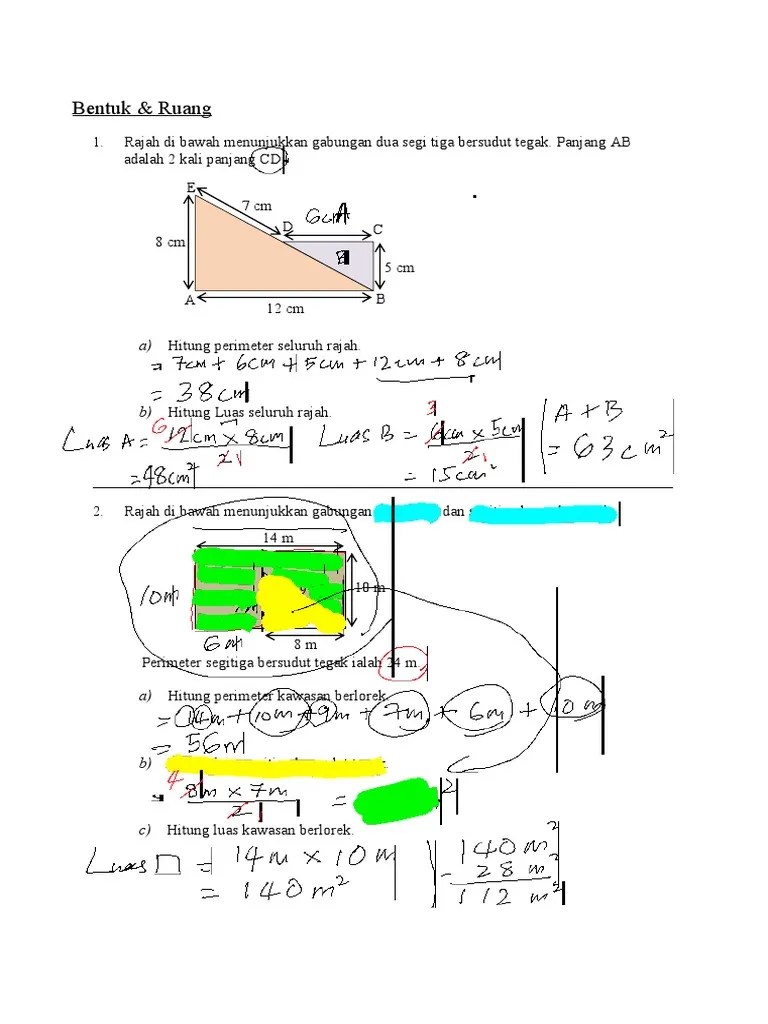 Bentuk & Ruang
1. Rajah di bawah menunjukkan gabungan dua segi tiga bersudut tegak. Panjang AB
adalah 2 kali panjang CD
E
7 cm
6cm A
D
C
8 cm
B
5 cm
A
B
12 cm
a) Hitung perimeter seluruh rajah.
= 7cm + 6cm + 5cm + 12cm + 8cm
= 38cm
b) Hitung Luas seluruh rajah.
6 3
Luas A = 12cm x 8cm Luas B = 6cm x 5cm A + B
21 21
= 48cm² = 15cm² = 63cm²
2. Rajah di bawah menunjukkan gabungan dan
14 m
10m
10 m
6m
8 m
Perimeter segitiga bersudut tegak ialah 24 m.
a) Hitung perimeter kawasan berlorek.
= 14m + 10m + 9m + 7m + 6m + 10m
= 56m
b)
4
8m x 7m = 2
21
c) Hitung luas kawasan berlorek.
Luas = 14m x 10m 140m²
= 140m² - 28m²
112 m²